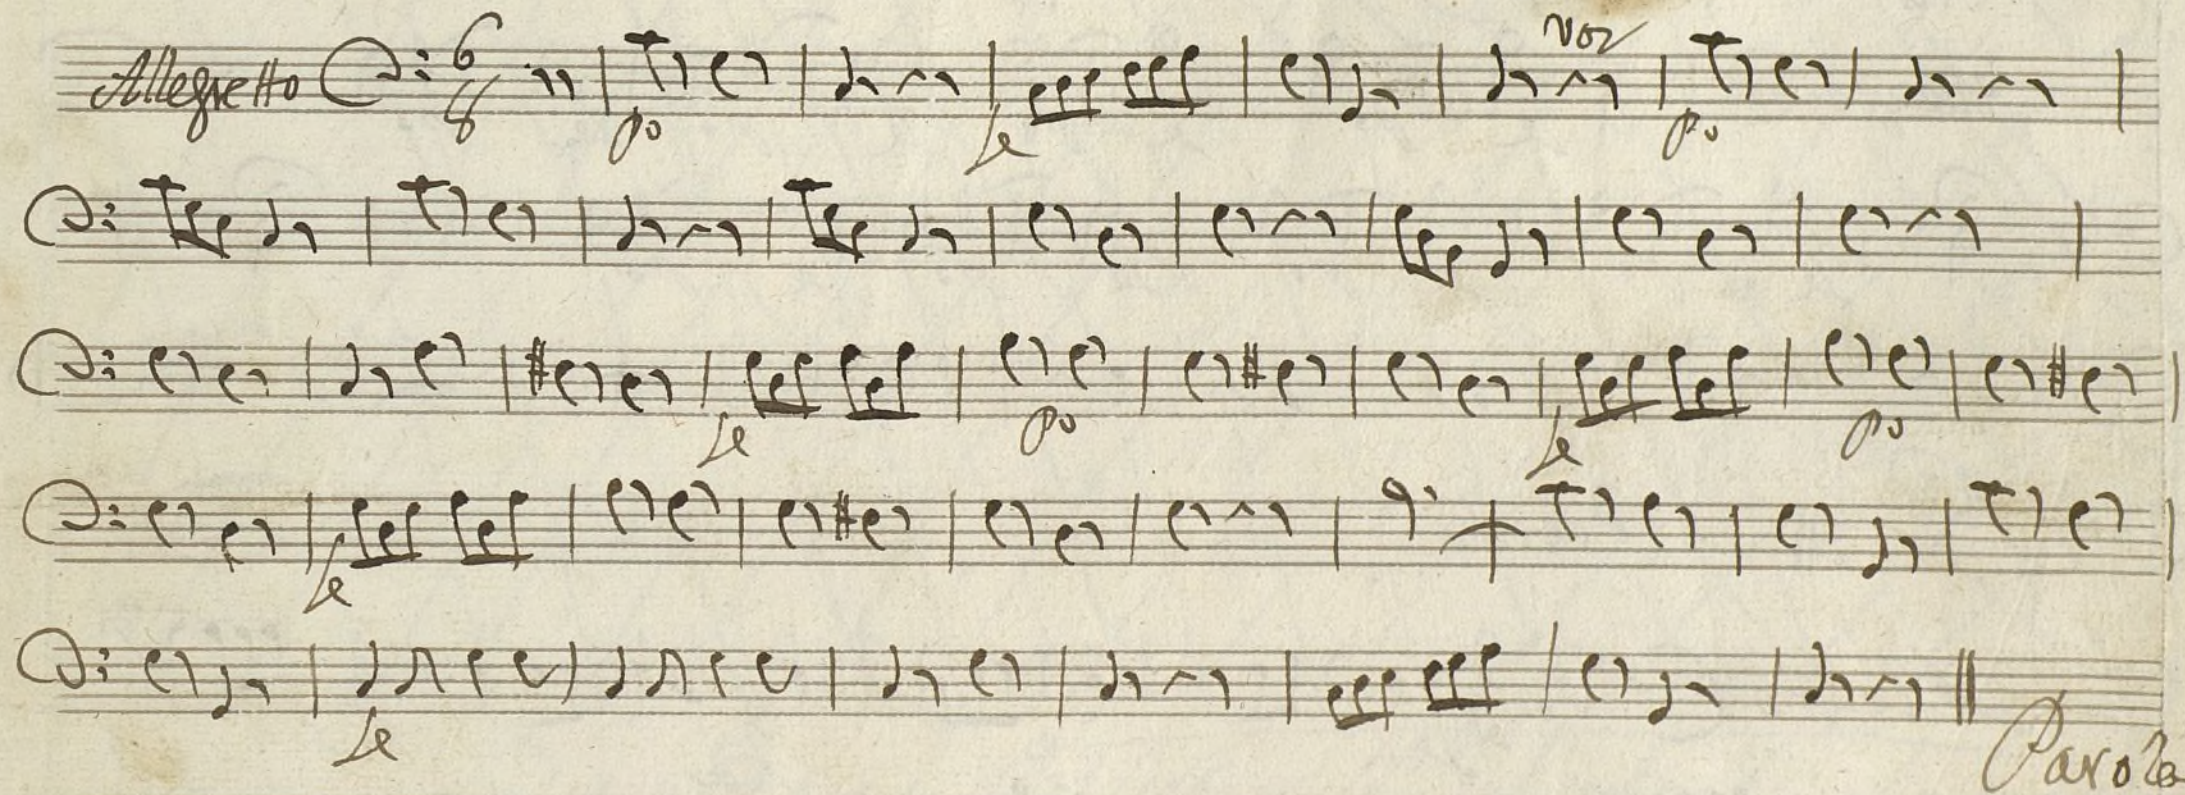 voz
Allegretto 6
8
po fe po
fe po fe po
fe
fe
Parola